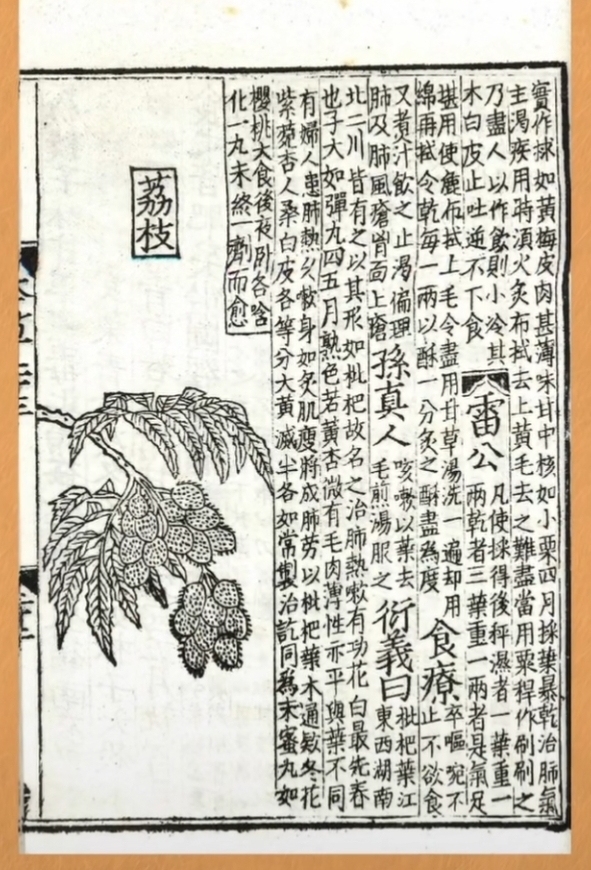 實作梂如黃梅皮肉甚薄味甘中核如小栗四月採葉暴乾治肺氣
主渴疾用時湏火炙布拭去上黃毛去之難盡當用粟稈作刷刷之
乃盡人以作飲則小冷其
木白皮止吐逆不下食
雷公
凡使採得後秤濕者一葉重一
兩乾者三葉重一兩者是氣足
堪用使麄布拭上毛令盡用甘草湯洗一遍却用
綿再拭令乾每一兩以酥一分炙之酥盡為度
食療
卒嘔啘不
止不欲食
又煑汁飲之止渴偏理
肺及肺風瘡胷面上瘡
孫真人
咳嗽以葉去
毛煎湯服之
衍義曰
枇杷葉江
東西湖南
北二川皆有之以其形如枇杷故名之治肺熱嗽有功花白最先春
也子大如彈丸四五月熟色若黃杏微有毛肉薄性亦平與葉不同
有婦人患肺熱久嗽身如炙肌瘦將成肺勞以枇杷葉木通欵冬花
紫菀杏人桑白皮各等分大黃減半各如常製治訖同為末蜜丸如
櫻桃大食後夜卧各含
化一丸未終一劑而愈
荔枝